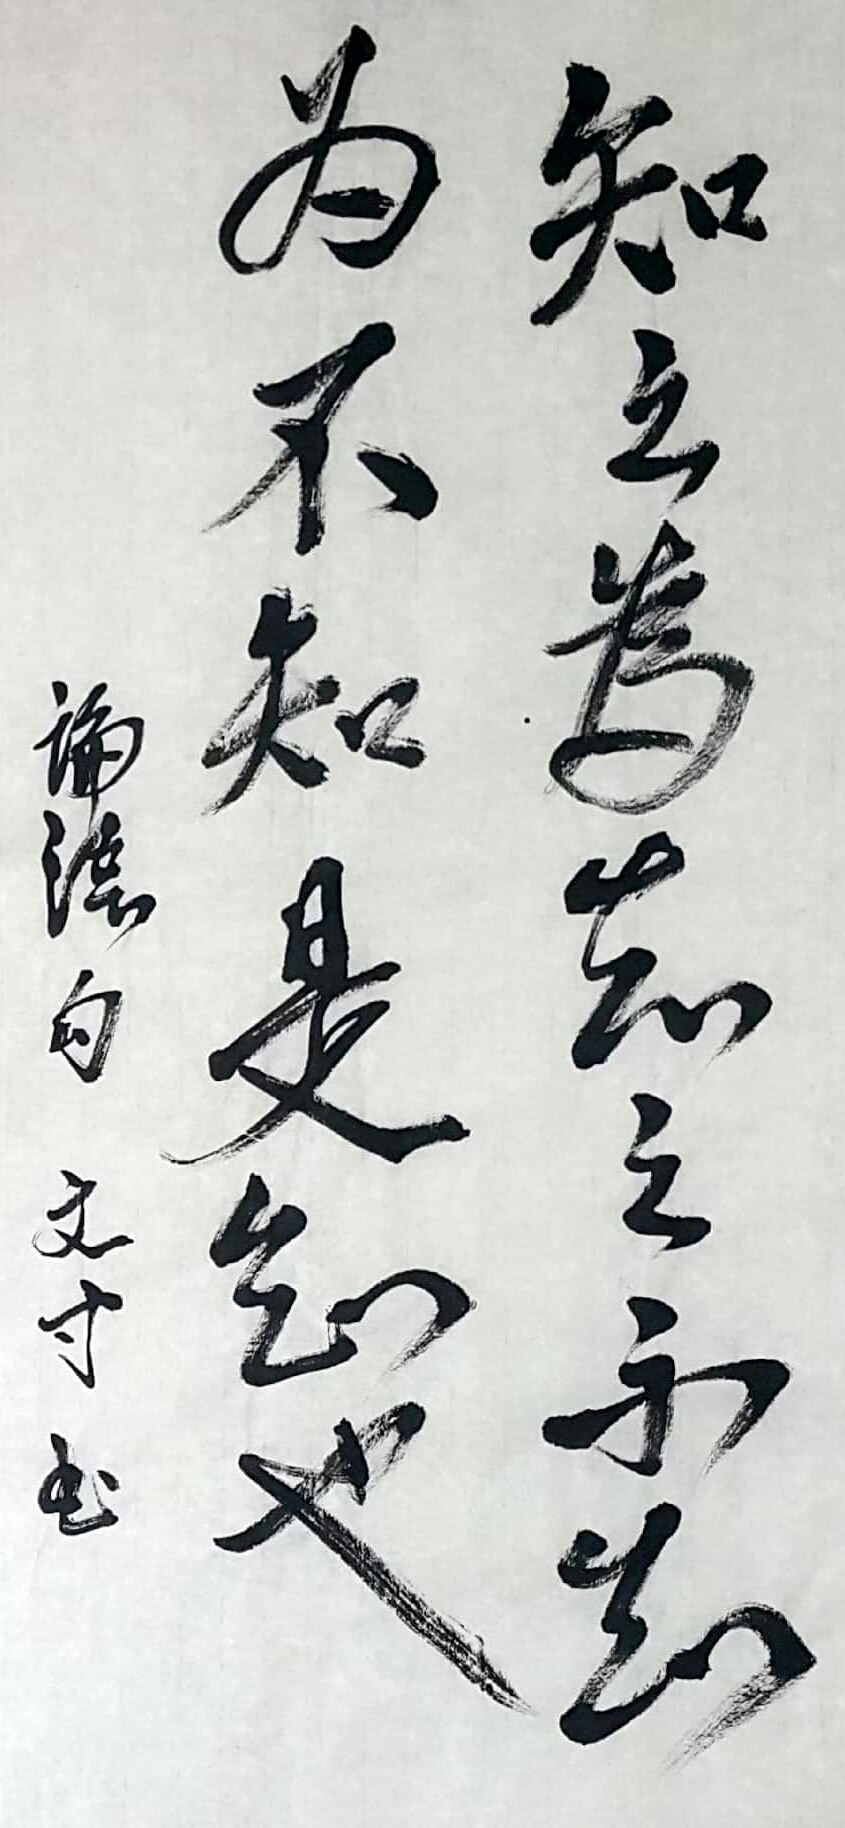 知之為知之不知
为不知是知也
論語句 文寸书